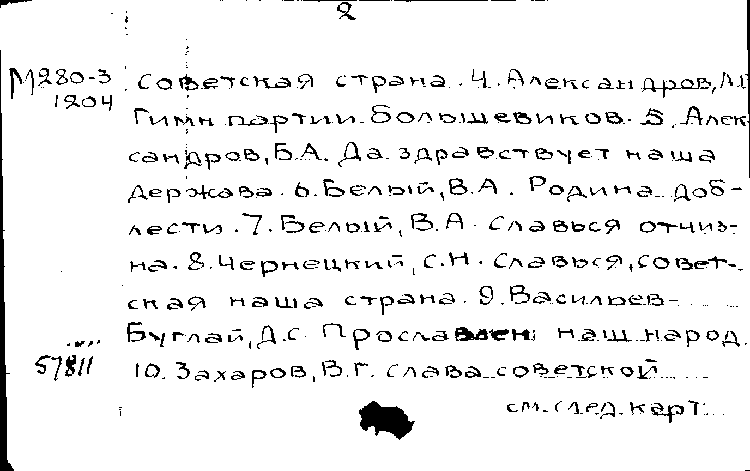 2
М280-3 советская страна. 4. Александров,
1204 Гимн партии большевиков. 5. Алек
сандров, Б.А. Да здравствует наша
держава. 6. Белый, В.А. Родина доб-
лести. 7. Белый, В.А. Славься отчиз-
на. 8. Чернецкий, С.Н. Славься, совет-
ская наша страна. 9. Васильев-
Буглай, Д.С. Прославлен наш народ.
57811 10. Захаров, В.Г. Слава советской
см. след. карт.